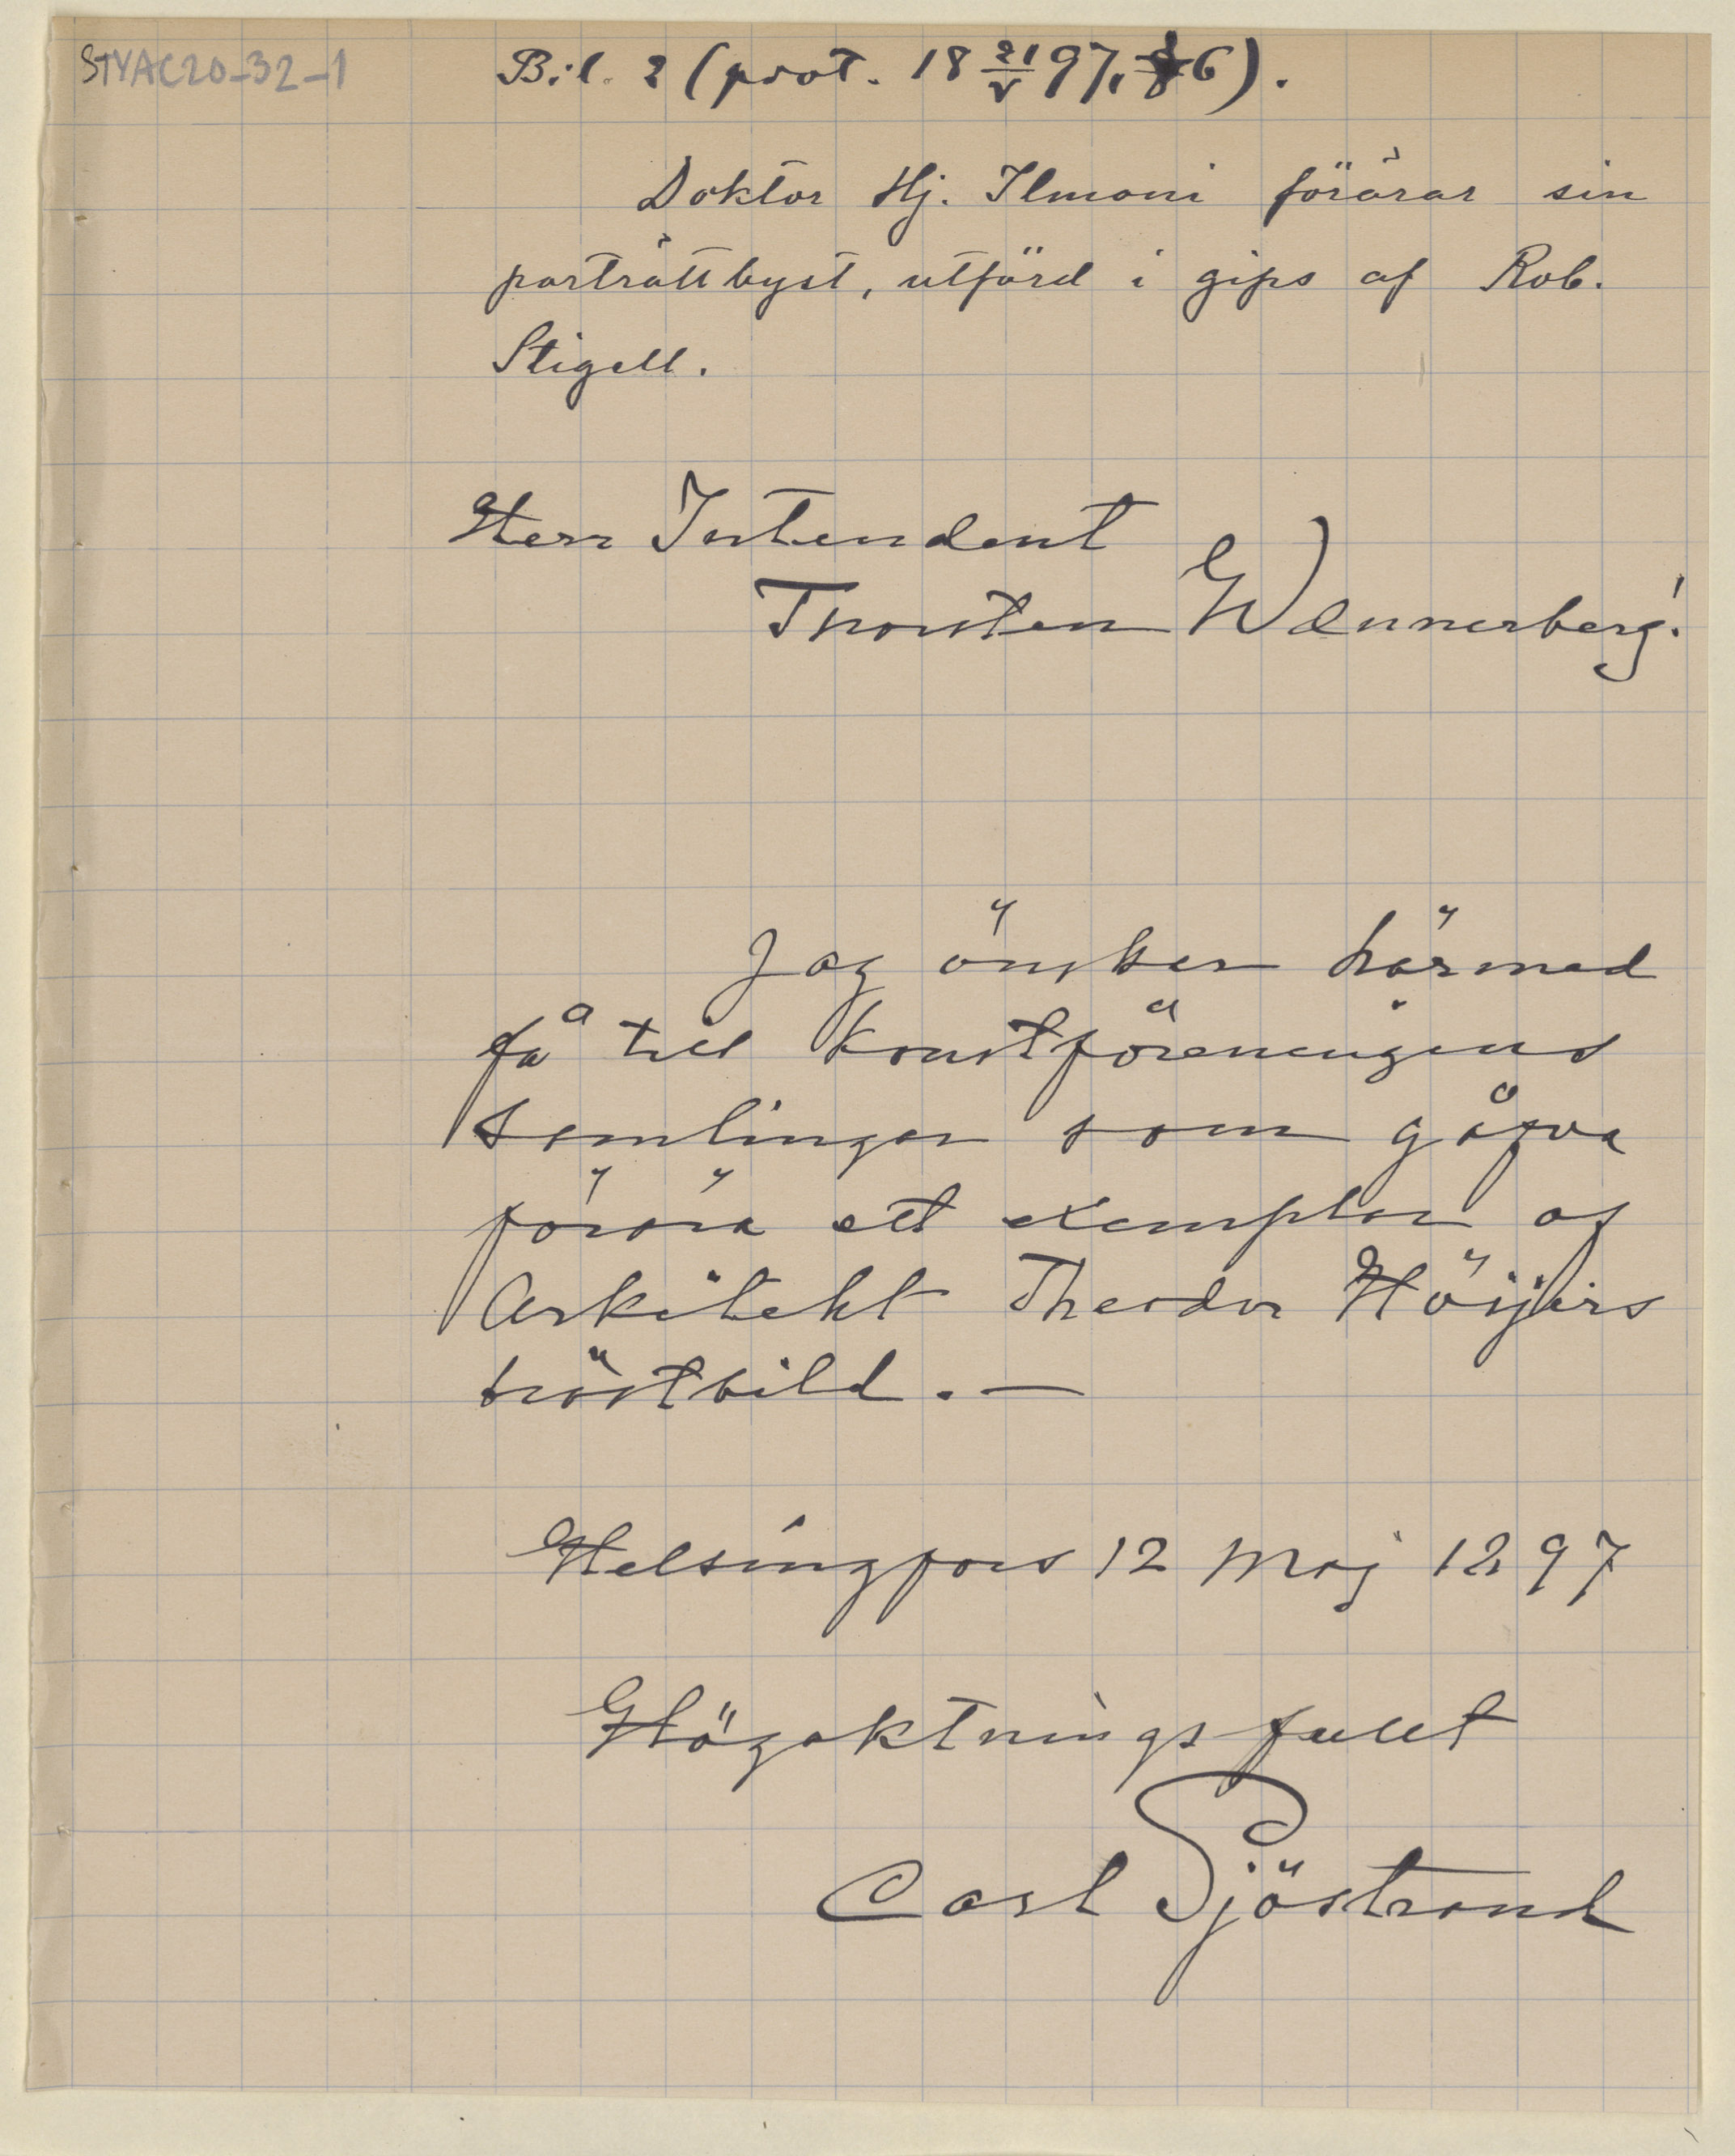 STYAC20-32-1
Bil. 2 (prot. 18 21/V 97, § 6).
Doktor Hj. Ilmoni förärar sin
porträttbyst, utförd i gips af Rob.
Stigell.
Herr Intendent
Thorsten Wænnerberg!
Jag önskar härmed
få till Konstföreningens
Samlingar som gåfva
förära ett exemplar af
Arkitekt Theodor Höijers
bröstbild. —
Helsingfors 12 Maj 1897
Högaktningsfullt
Carl Sjöstrand